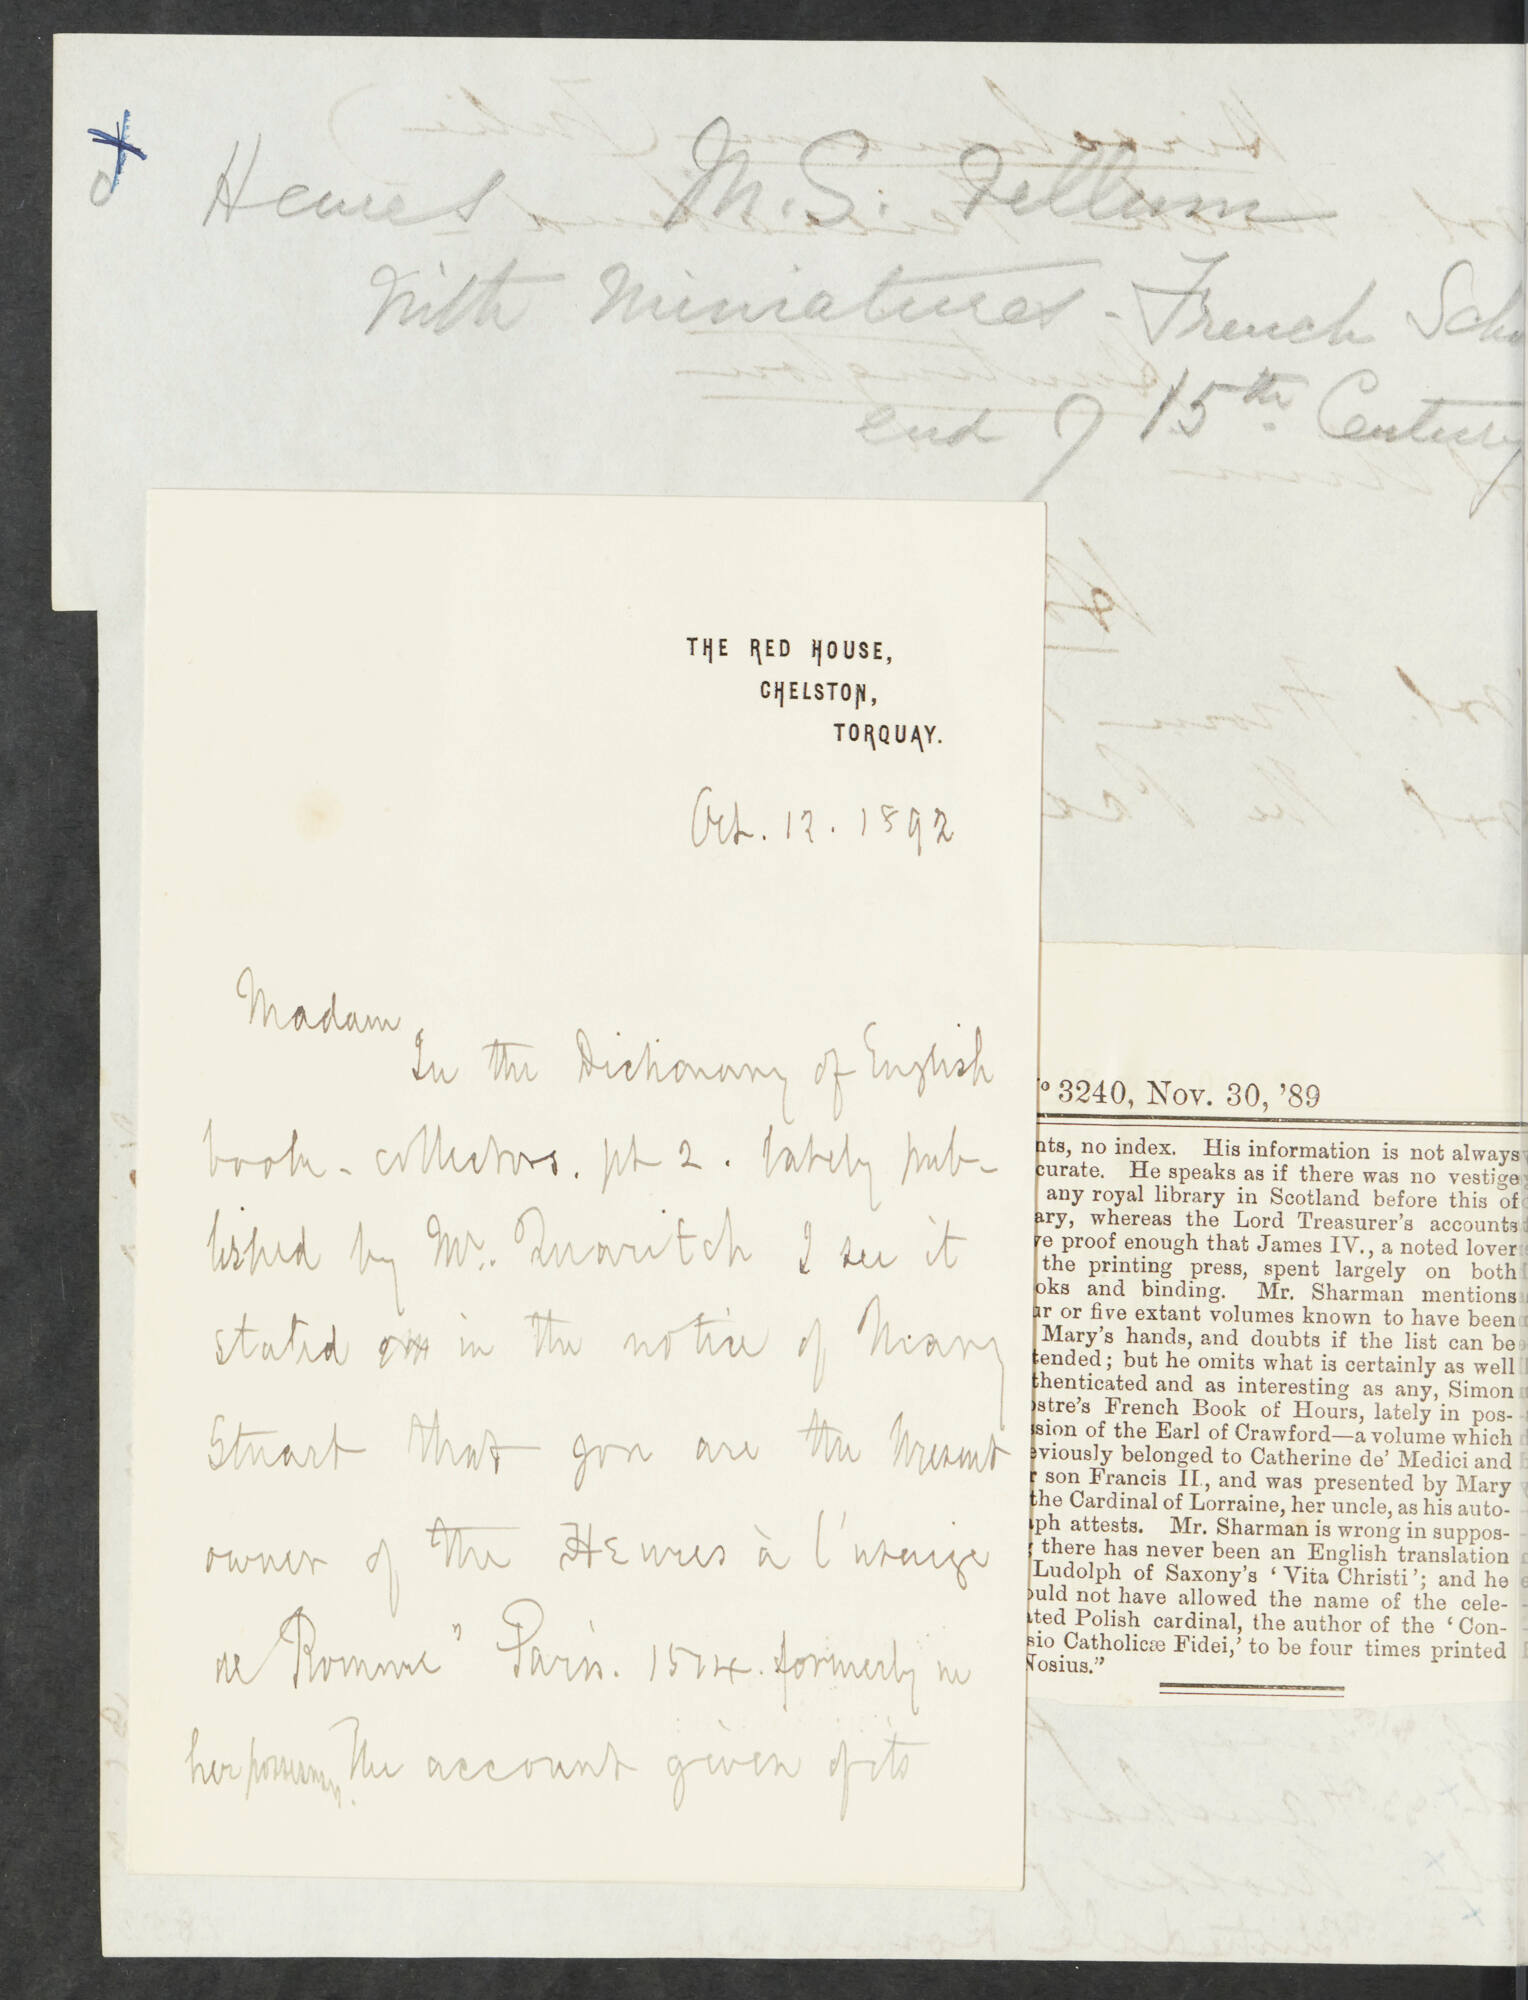 Heures M.S. Vellum
with Miniatures - French Scho
end of 15th Century
THE RED HOUSE,
CHELSTON,
TORQUAY.
Oct. 12. 1892
Madam
In the Dictionary of English
book-collectors. pt 2. lately pub-
lished by Mr. Quaritch I see it
stated in the notice of Mary
Stuart that you are the present
owner of the Heures à l'usaige
de Romme" Paris. 1514. formerly in
her possession. The account given of its
o 3240, Nov. 30, '89
nts, no index. His information is not always
curate. He speaks as if there was no vestige
any royal library in Scotland before this of
ary, whereas the Lord Treasurer's accounts
ve proof enough that James IV., a noted lover
the printing press, spent largely on both
oks and binding. Mr. Sharman mentions
ur or five extant volumes known to have been
Mary's hands, and doubts if the list can be
tended; but he omits what is certainly as well
thenticated and as interesting as any, Simon
ostre's French Book of Hours, lately in pos-
sion of the Earl of Crawford—a volume which
eviously belonged to Catherine de' Medici and
r son Francis II., and was presented by Mary
the Cardinal of Lorraine, her uncle, as his auto-
aph attests. Mr. Sharman is wrong in suppos-
g there has never been an English translation
Ludolph of Saxony's 'Vita Christi'; and he
ould not have allowed the name of the cele-
ated Polish cardinal, the author of the 'Con-
sio Catholicæ Fidei,' to be four times printed
Nosius."